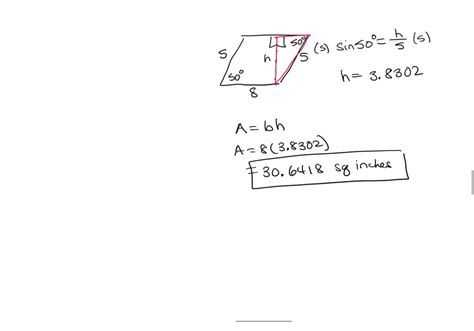 50°
5
h
5
50°
8
(5) sin50° = h/5 (5)
h = 3.8302
A = bh
A = 8(3.8302)
= 30.6418 sq inches